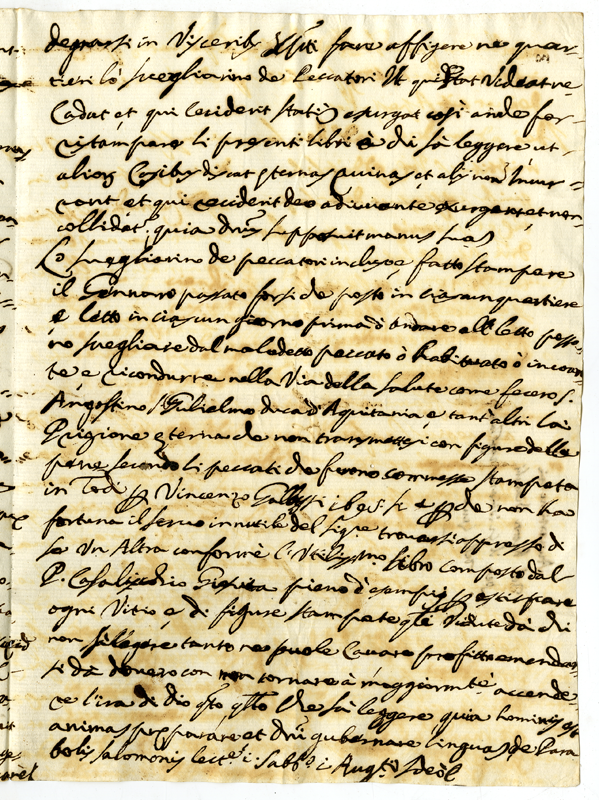 degnarsi in Visceribus Xpti fare affigere ne quar-
tieri lo svegliarino de Peccatori Ut qui stat Videat ne
Cadat et qui ceciderit statim exurgat così anche far
ristampare li presenti libri à chi sà leggere ut
alios discat eternas ruinas et alij non incur-
rant et qui ceciderit deo adiuvante exurgant, et non
collidat.r quia dnus supposuit manus suas
Lo svegliarino de peccatori incluso è fatto stampare
il Gennaro passato forsi che posto in ciascun quartiere
e letto in ciascun giorno prima d'andare all letto posso-
no svegliarse dal maledetto peccato ò habituato ò
te e ricondurre nella Via della salute come fecero s.
Angostino s. Gulielmo duca d'Aquitania e tant'altri la
Prigione eterna che non con figure delle
pene secondo li peccati che furono commesse stampata
in Todi p Vincenzo che non ha
fortuna il servo innutile del Sig.re trovarsi appresso di
se Un Altra conforme l'Utiliss.mo libro composto dal
P. Giesuita pieno d'esempij p
ogni Vitio e di figure stampate Vedute da chi
non sà legere tanto ne puole Cavare profitto
si dà dovero con non tornare à maggiorm.te accende-
re l'ira di dio q.to q.llo che sà leggere quia hominis est
animas preparare et dni gubernare linguas de Para
bolis Salomonis lect. i Sabb.o i Aug.ti